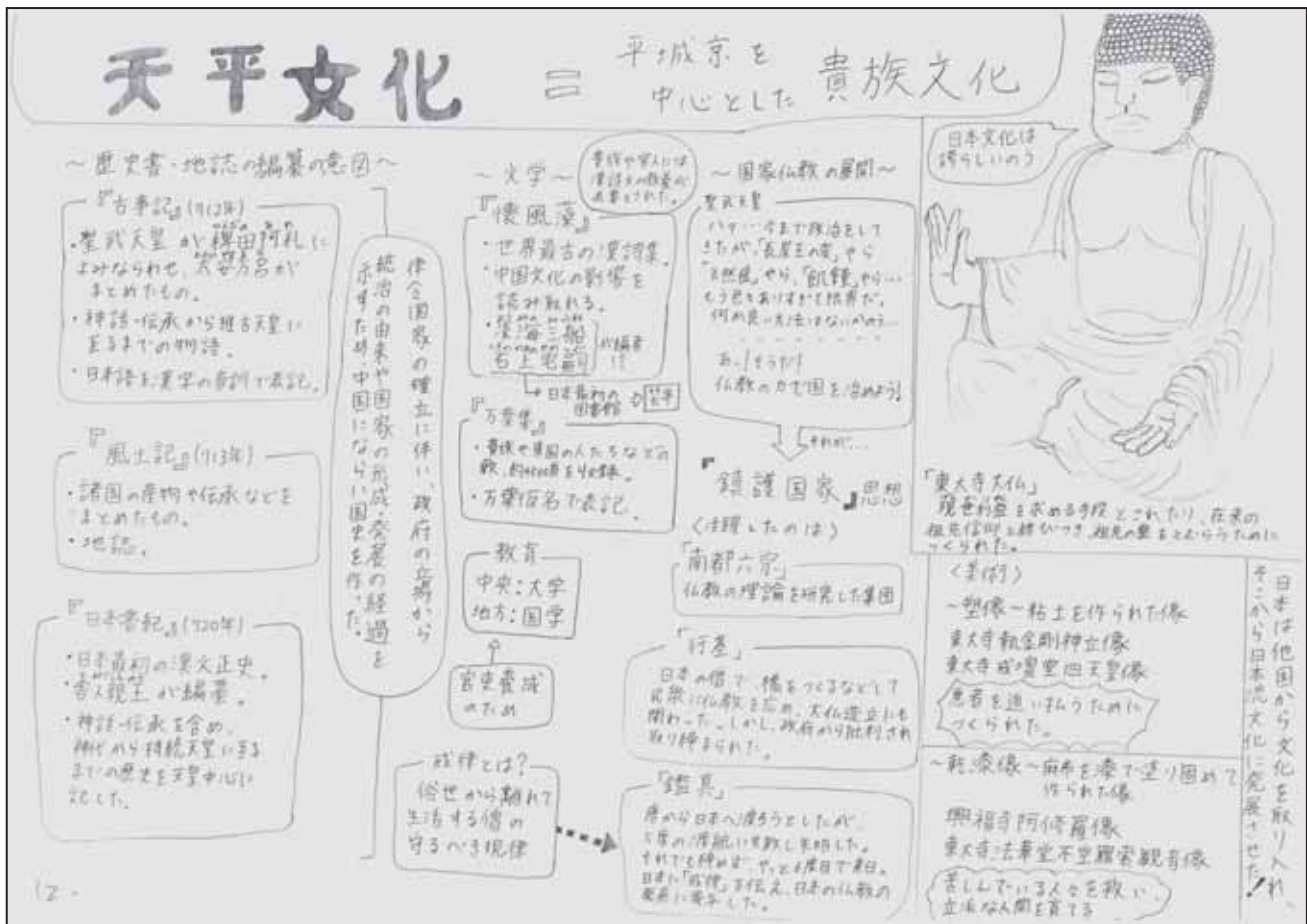 天平文化 = 平城京を
中心とした 貴族文化
～歴史書・地誌の編纂の意図～
『古事記』(712年)
・聖武天皇が稗田阿礼に
よみならわせ、太安万侶が
まとめたもの。
・神話・伝承から推古天皇に
至るまでの物語。
・日本語を漢字の音訓で表記。
『風土記』(713年)
・諸国の産物や伝承などを
まとめたもの。
・地誌。
『日本書紀』(720年)
・日本最初の漢文正史。
・舎人親王が編纂。
・神話・伝承を含め、
神代から持統天皇に至る
までの歴史を天皇中心に
記した。
律令国家の確立に伴い、政府の立場から
統治の由来や国家の形成・発展の経過を
示すため、中国にならい国史を作った。
～文学～
貴族や官人には
漢詩文の教養が
必要とされた。
『懐風藻』
・世界最古の漢詩集。
・中国文化の影響を
読み取れる。
・淡海三船
石上宅嗣
が編者
!?
→日本最初の
図書館
芸亭
『万葉集』
・貴族や東国の人たちなどの
歌、約4500首を収録。
・万葉仮名で表記。
教育
中央：大学
地方：国学
官吏養成
のため
戒律とは？
俗世から離れて
生活する僧の
守るべき規律
～国家仏教の展開～
聖武天皇
ハァ…今まで政治をして
きたが、「長屋王の変」やら
「天然痘」やら、「飢饉」やら…
もう色々ありすぎて限界だ。
何か良い方法はないかのう…
あ、！そうだ！
仏教の力で国を治めよう！
それが…
『鎮護国家』思想
〈活躍したのは〉
「南都六宗」
仏教の理論を研究した集団
「行基」
日本の僧で、橋をつくるなどして
民衆に仏教を広め、大仏造立にも
関わった。しかし、政府から批判され
取り締まられた。
「鑑真」
唐から日本へ渡ろうとしたが、
5度の渡航に失敗し失明した。
それでも諦めず、やっと6度目で来日。
日本に「戒律」を伝え、日本の仏教の
発展に寄与した。
日本文化は
誇らしいのう
「東大寺大仏」
現世利益を求める手段とされたり、在来の
祖先信仰と結びつき、祖先の霊をとむらうために
つくられた。
〈芸術〉
～塑像～粘土を作られた像
東大寺執金剛神立像
東大寺戒壇堂四天王像
悪者を追い払うために
つくられた。
～乾漆像～麻布を漆で塗り固めて
作られた像
興福寺阿修羅像
東大寺法華堂不空羂索観音像
苦しんでいる人々を救い、
立派な人間を育てる
日本は他国から文化を取り入れ、
そこから日本流文化に発展させた！
12.